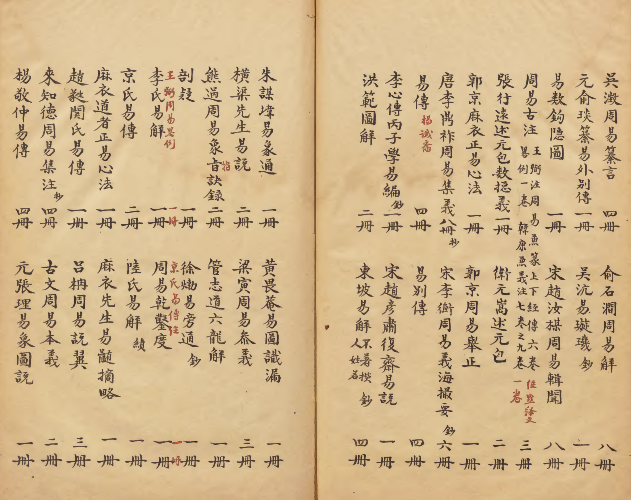 吳澂周易纂言 四冊
俞石澗周易解 八冊
元俞琰纂易外別傳 一冊
吳沆易璇璣 鈔 一冊
易數鈎隱圖 一冊
宋趙汝楳周易輯聞 八冊
周易古注 王弼注周易兼篆上下經傳六卷 易例一卷 韓康 義注七卷之九卷 一卷 三冊
張行遠述元包數揔義 一冊
衛元嵩述元包 二冊
郭京麻衣正易心法 一冊
郭京周易舉正 一冊
唐李鼎祚周易集義 八冊 鈔
宋李衡周易義海撮要 鈔 六冊
易傳 楊誠斋 四冊
易別傳 四冊
李心傳丙子學易編 鈔 一冊
宋趙彥肅復齋易說 一冊
洪範圖解 二冊
東坡易解 不著撰人姓名 鈔 四冊
朱謀㙔易象通 一冊
黃畏菴易圖識漏 一冊
橫梁先生易說 二冊
梁寅周易叅義 三冊
熊過周易象旨訣録 二冊
管志道六龍解 一冊
剖疑 一冊
徐𤊹易旁通 鈔 一冊
王弼周易畧例 一冊
京氏易傳注 一冊
李氏易解 一冊
周易乾鑿度 一冊
京氏易傳 二冊
陸氏易解 績 一冊
麻衣道者正易心法 一冊
麻衣先生易髓摘略 一冊
趙蕤関氏易傳 一冊
呂柟周易說翼 三冊
來知德周易集注 鈔 四冊
古文周易本義 二冊
楊敬仲易傳 四冊
元張理易象圖說 一冊